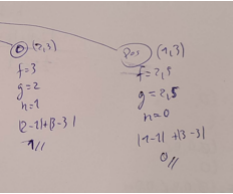 (2,3)
f=3
g=2
h=1
|2-1|+|3-3|
1//
(1,3)
f=2,5
g=2,5
h=0
|1-1|+|3-3|
0//